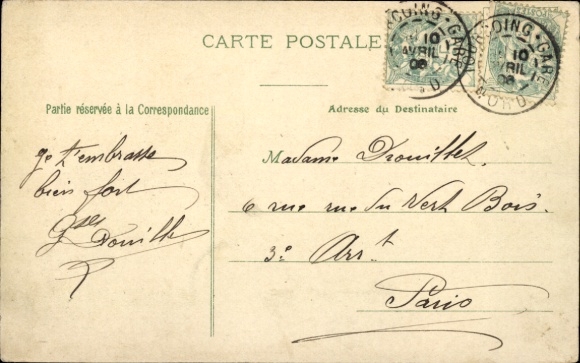 CARTE POSTALE
TOURCOING-GARE
10
AVRIL
06
NORD
TOURCOING-GARE
10
AVRIL
06
NORD
Partie réservée à la Correspondance
Adresse du Destinataire
Je t'embrasse
bien fort
Madame Drouillet.
6 rue rue du Vert Bois.
3e Arrt
Paris